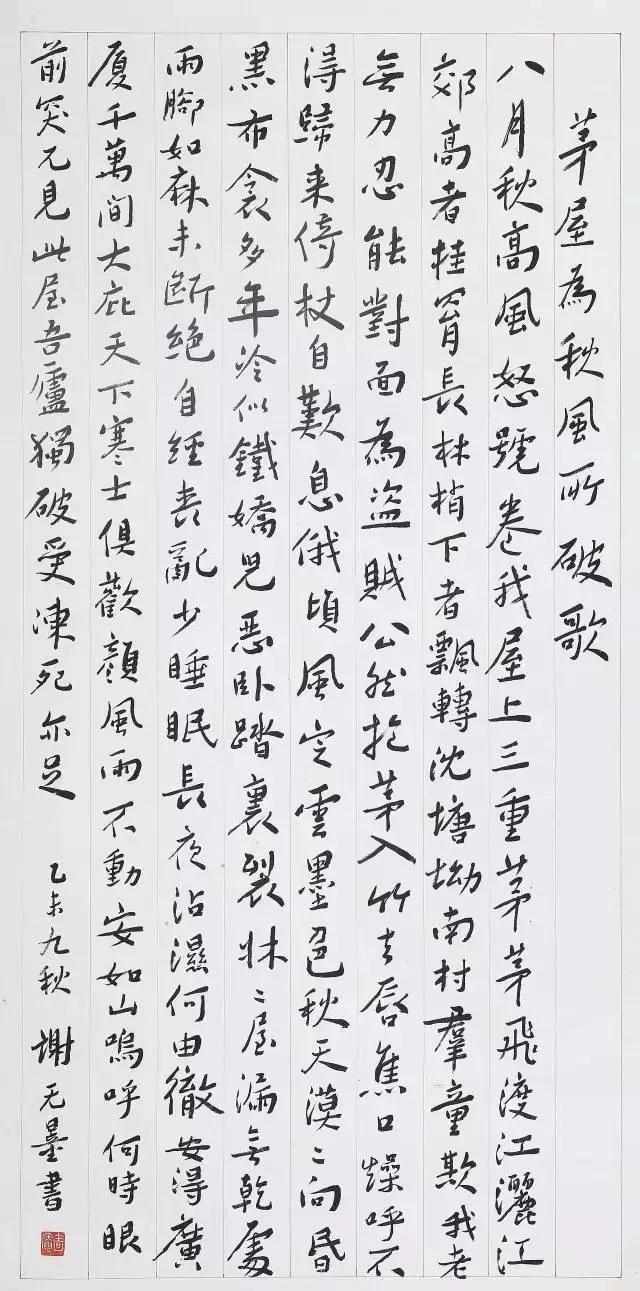 茅屋為秋風所破歌
八月秋高風怒號卷我屋上三重茅茅飛渡江灑江
郊高者挂罥長林梢下者飄轉沈塘坳南村羣童欺我老
無力忍能對面為盜賊公然抱茅入竹去唇焦口燥呼不
得歸来倚杖自歎息俄頃風定雲墨色秋天漠〻向昏
黑布衾多年冷似鐵嬌兒恶卧踏裏裂牀〻屋漏無乾處
雨腳如麻未斷絕自經喪亂少睡眠長夜沾濕何由徹安得廣
廈千萬間大庇天下寒士俱歡顏風雨不動安如山嗚呼何時眼
前突兀見此屋吾廬獨破受凍死亦足 乙未九秋 謝无墨書